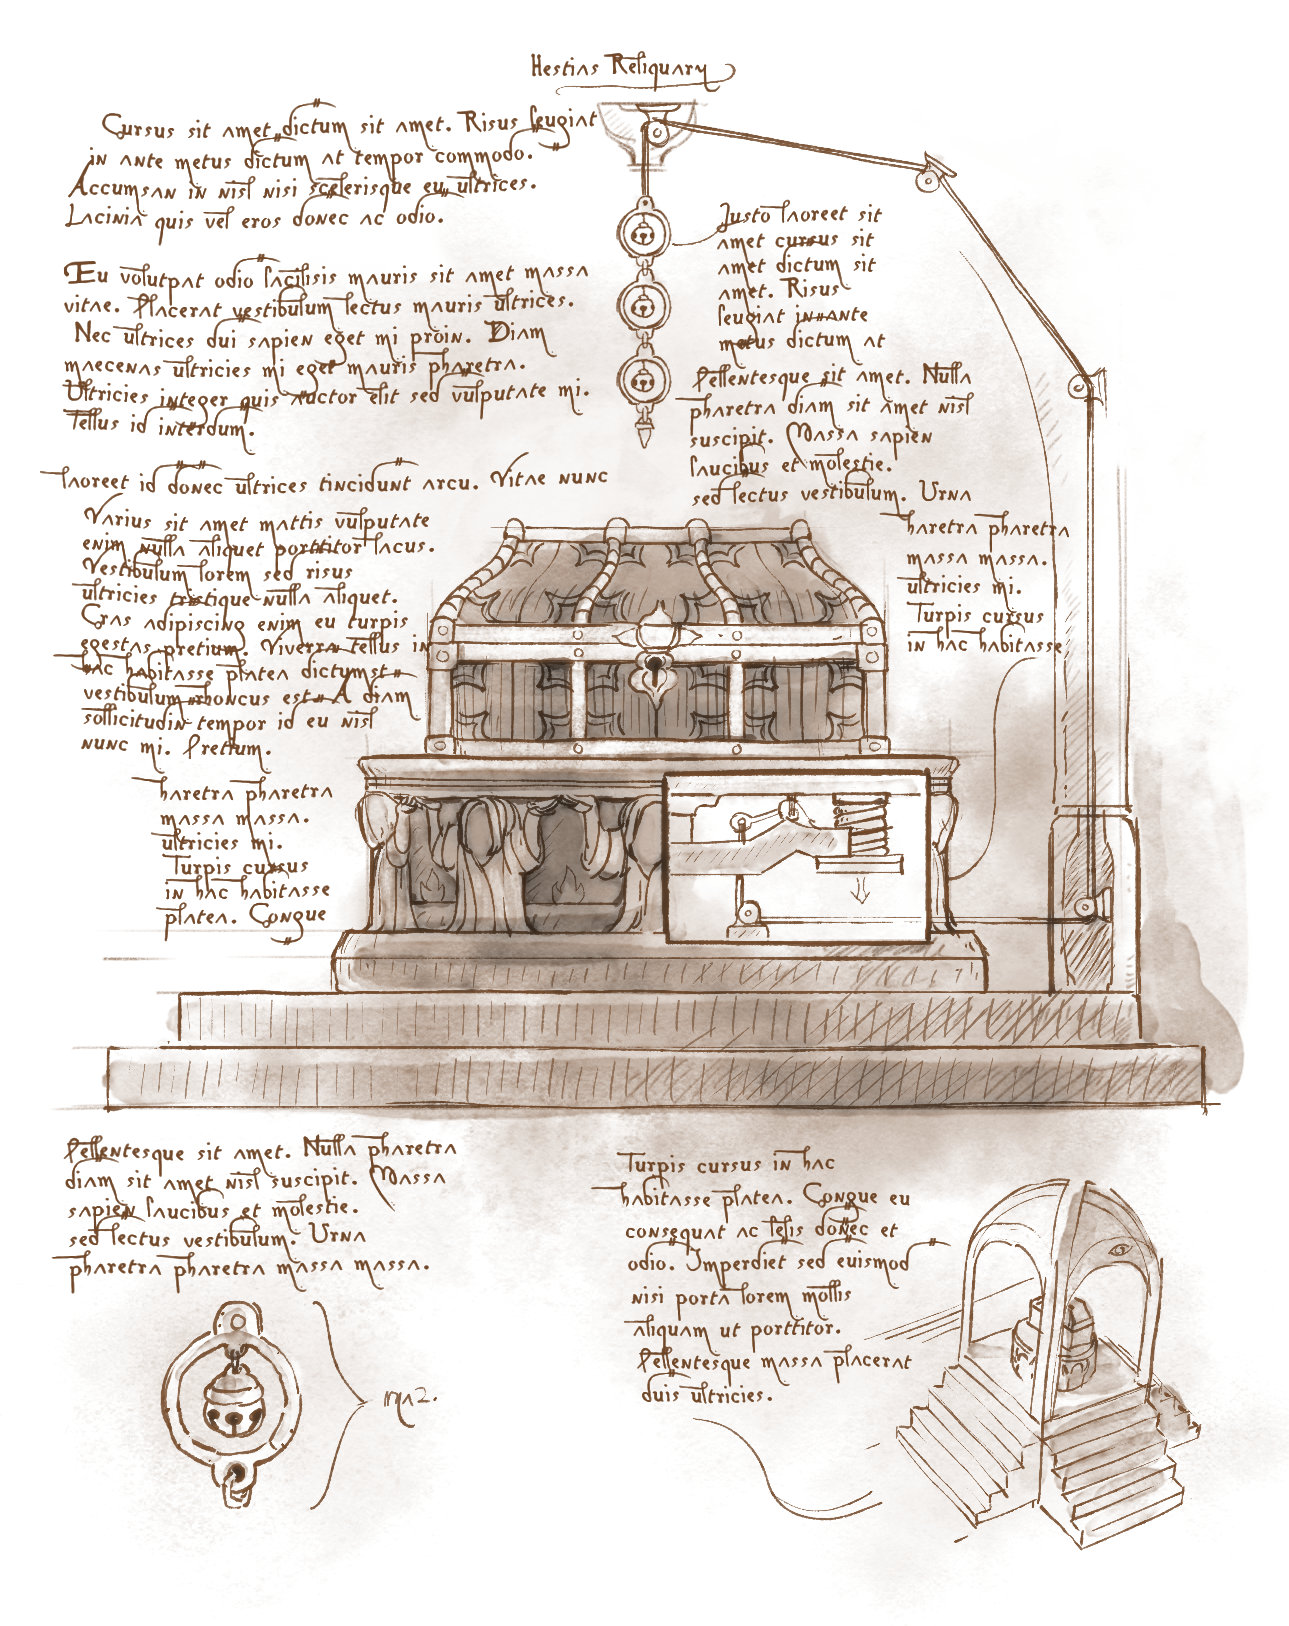 Hestias Reliquary
Cursus sit amet dictum sit amet. Risus feugiat
in ante metus dictum at tempor commodo.
Accumsan in nisl nisi scelerisque eu ultrices.
Lacinia quis vel eros donec ac odio.
Eu volutpat odio facilisis mauris sit amet massa
vitae. Placerat vestibulum lectus mauris ultrices.
Nec ultrices dui sapien eget mi proin. Diam
maecenas ultricies mi eget mauris pharetra.
Ultricies integer quis auctor elit sed vulputate mi.
Tellus id interdum.
laoreet id donec ultrices tincidunt arcu. Vitae nunc
Varius sit amet mattis vulputate
enim nulla aliquet porttitor lacus.
Vestibulum lorem sed risus
ultricies tristique nulla aliquet.
Cras adipiscing enim eu turpis
egestas pretium. Viverra tellus in
hac habitasse platea dictumst
vestibulum rhoncus est A diam
sollicitudin tempor id eu nisl
nunc mi. Pretium.
haretra pharetra
massa massa.
ultricies mi.
Turpis cursus
in hac habitasse
platea. Congue
Justo laoreet sit
amet cursus sit
amet dictum sit
amet. Risus
feugiat in ante
metus dictum at
Pellentesque sit amet. Nulla
pharetra diam sit amet nisl
suscipit. Massa sapien
faucibus et molestie.
sed lectus vestibulum. Urna
haretra pharetra
massa massa.
ultricies mi.
Turpis cursus
in hac habitasse
Pellentesque sit amet. Nulla pharetra
diam sit amet nisl suscipit. Massa
sapien faucibus et molestie.
sed lectus vestibulum. Urna
pharetra pharetra massa massa.
Turpis cursus in hac
habitasse platea. Congue eu
consequat ac felis donec et
odio. Imperdiet sed euismod
nisi porta lorem mollis
aliquam ut porttitor.
Pellentesque massa placerat
duis ultricies.